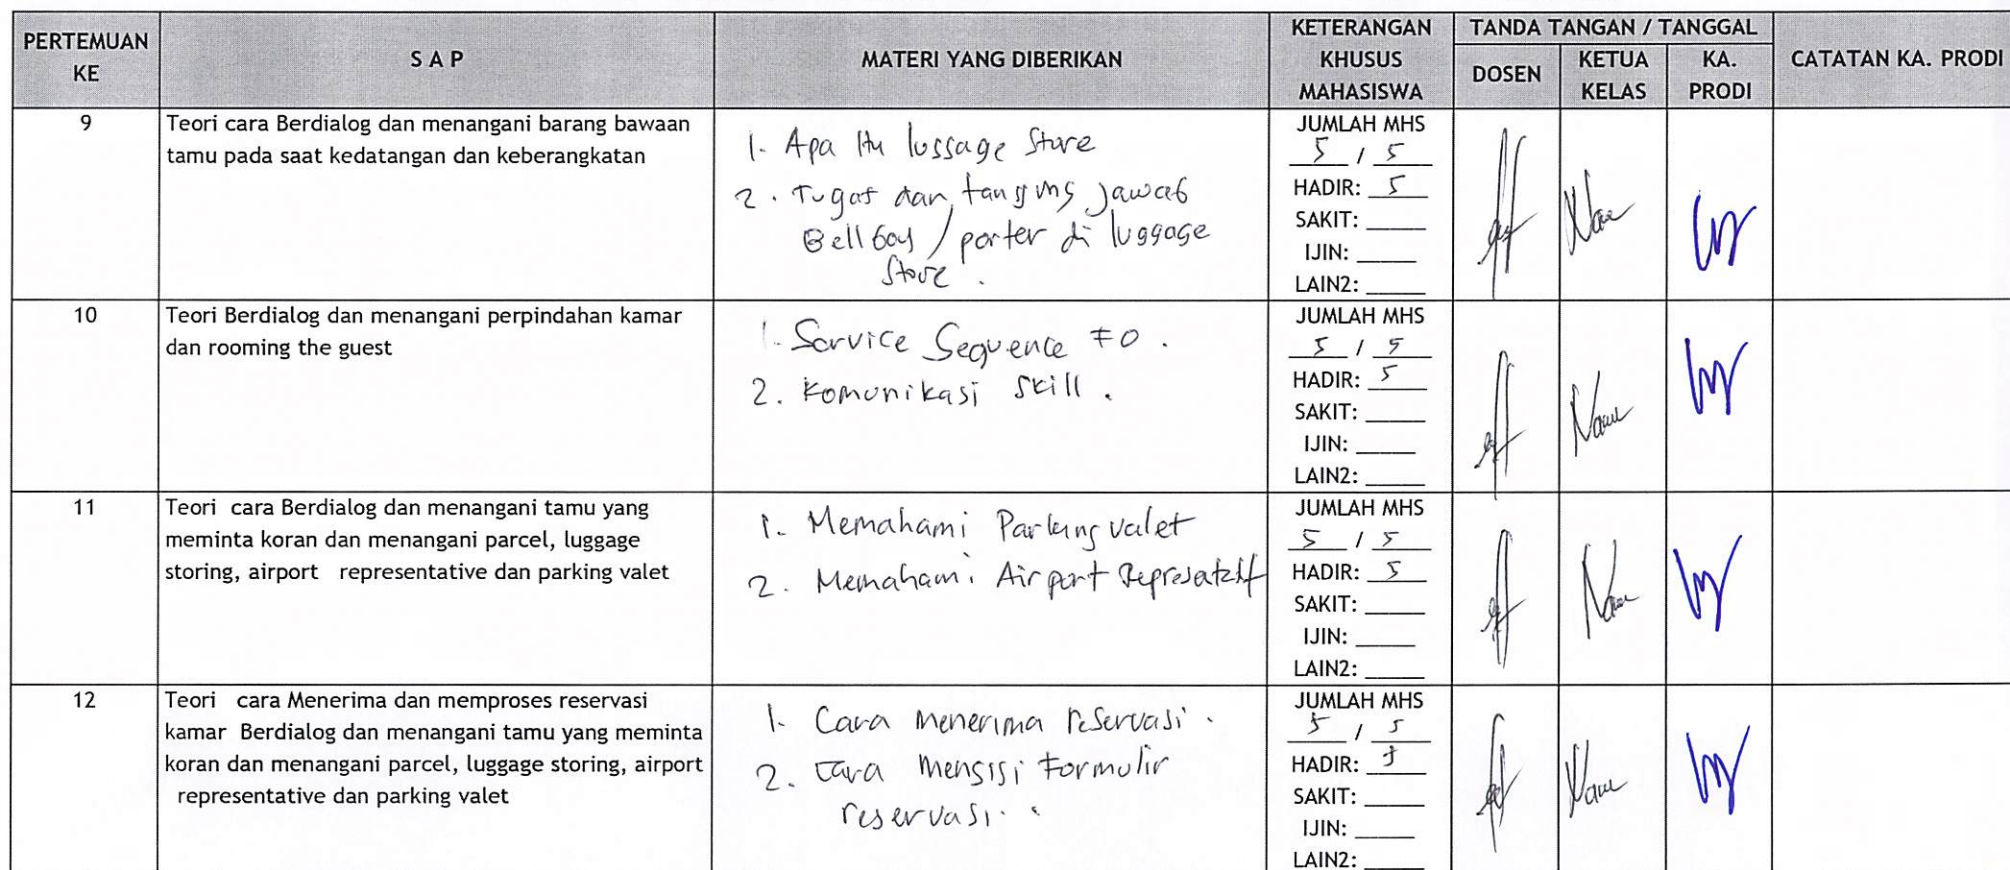 PERTEMUAN KE
S A P
MATERI YANG DIBERIKAN
KETERANGAN KHUSUS MAHASISWA
TANDA TANGAN / TANGGAL
DOSEN
KETUA KELAS
KA. PRODI
CATATAN KA. PRODI
9
Teori cara Berdialog dan menangani barang bawaan
tamu pada saat kedatangan dan keberangkatan
1. Apa Itu lussage Store
2. Tugas dan tanggung jawab
Bell boy / porter di luggage
Store.
JUMLAH MHS
5 / 5
HADIR: 5
SAKIT:
IJIN:
LAIN2:
10
Teori Berdialog dan menangani perpindahan kamar
dan rooming the guest
1. Service Sequence FO.
2. Komunikasi Skill.
JUMLAH MHS
5 / 5
HADIR: 5
SAKIT:
IJIN:
LAIN2:
11
Teori cara Berdialog dan menangani tamu yang
meminta koran dan menangani parcel, luggage
storing, airport representative dan parking valet
1. Memahami Parking valet
2. Memahami Airport Represatatif
JUMLAH MHS
5 / 5
HADIR: 5
SAKIT:
IJIN:
LAIN2:
12
Teori cara Menerima dan memproses reservasi
kamar Berdialog dan menangani tamu yang meminta
koran dan menangani parcel, luggage storing, airport
representative dan parking valet
1. Cara menerima reservasi.
2. Cara mengisi Formulir
reservasi.
JUMLAH MHS
5 / 5
HADIR: 5
SAKIT:
IJIN:
LAIN2: